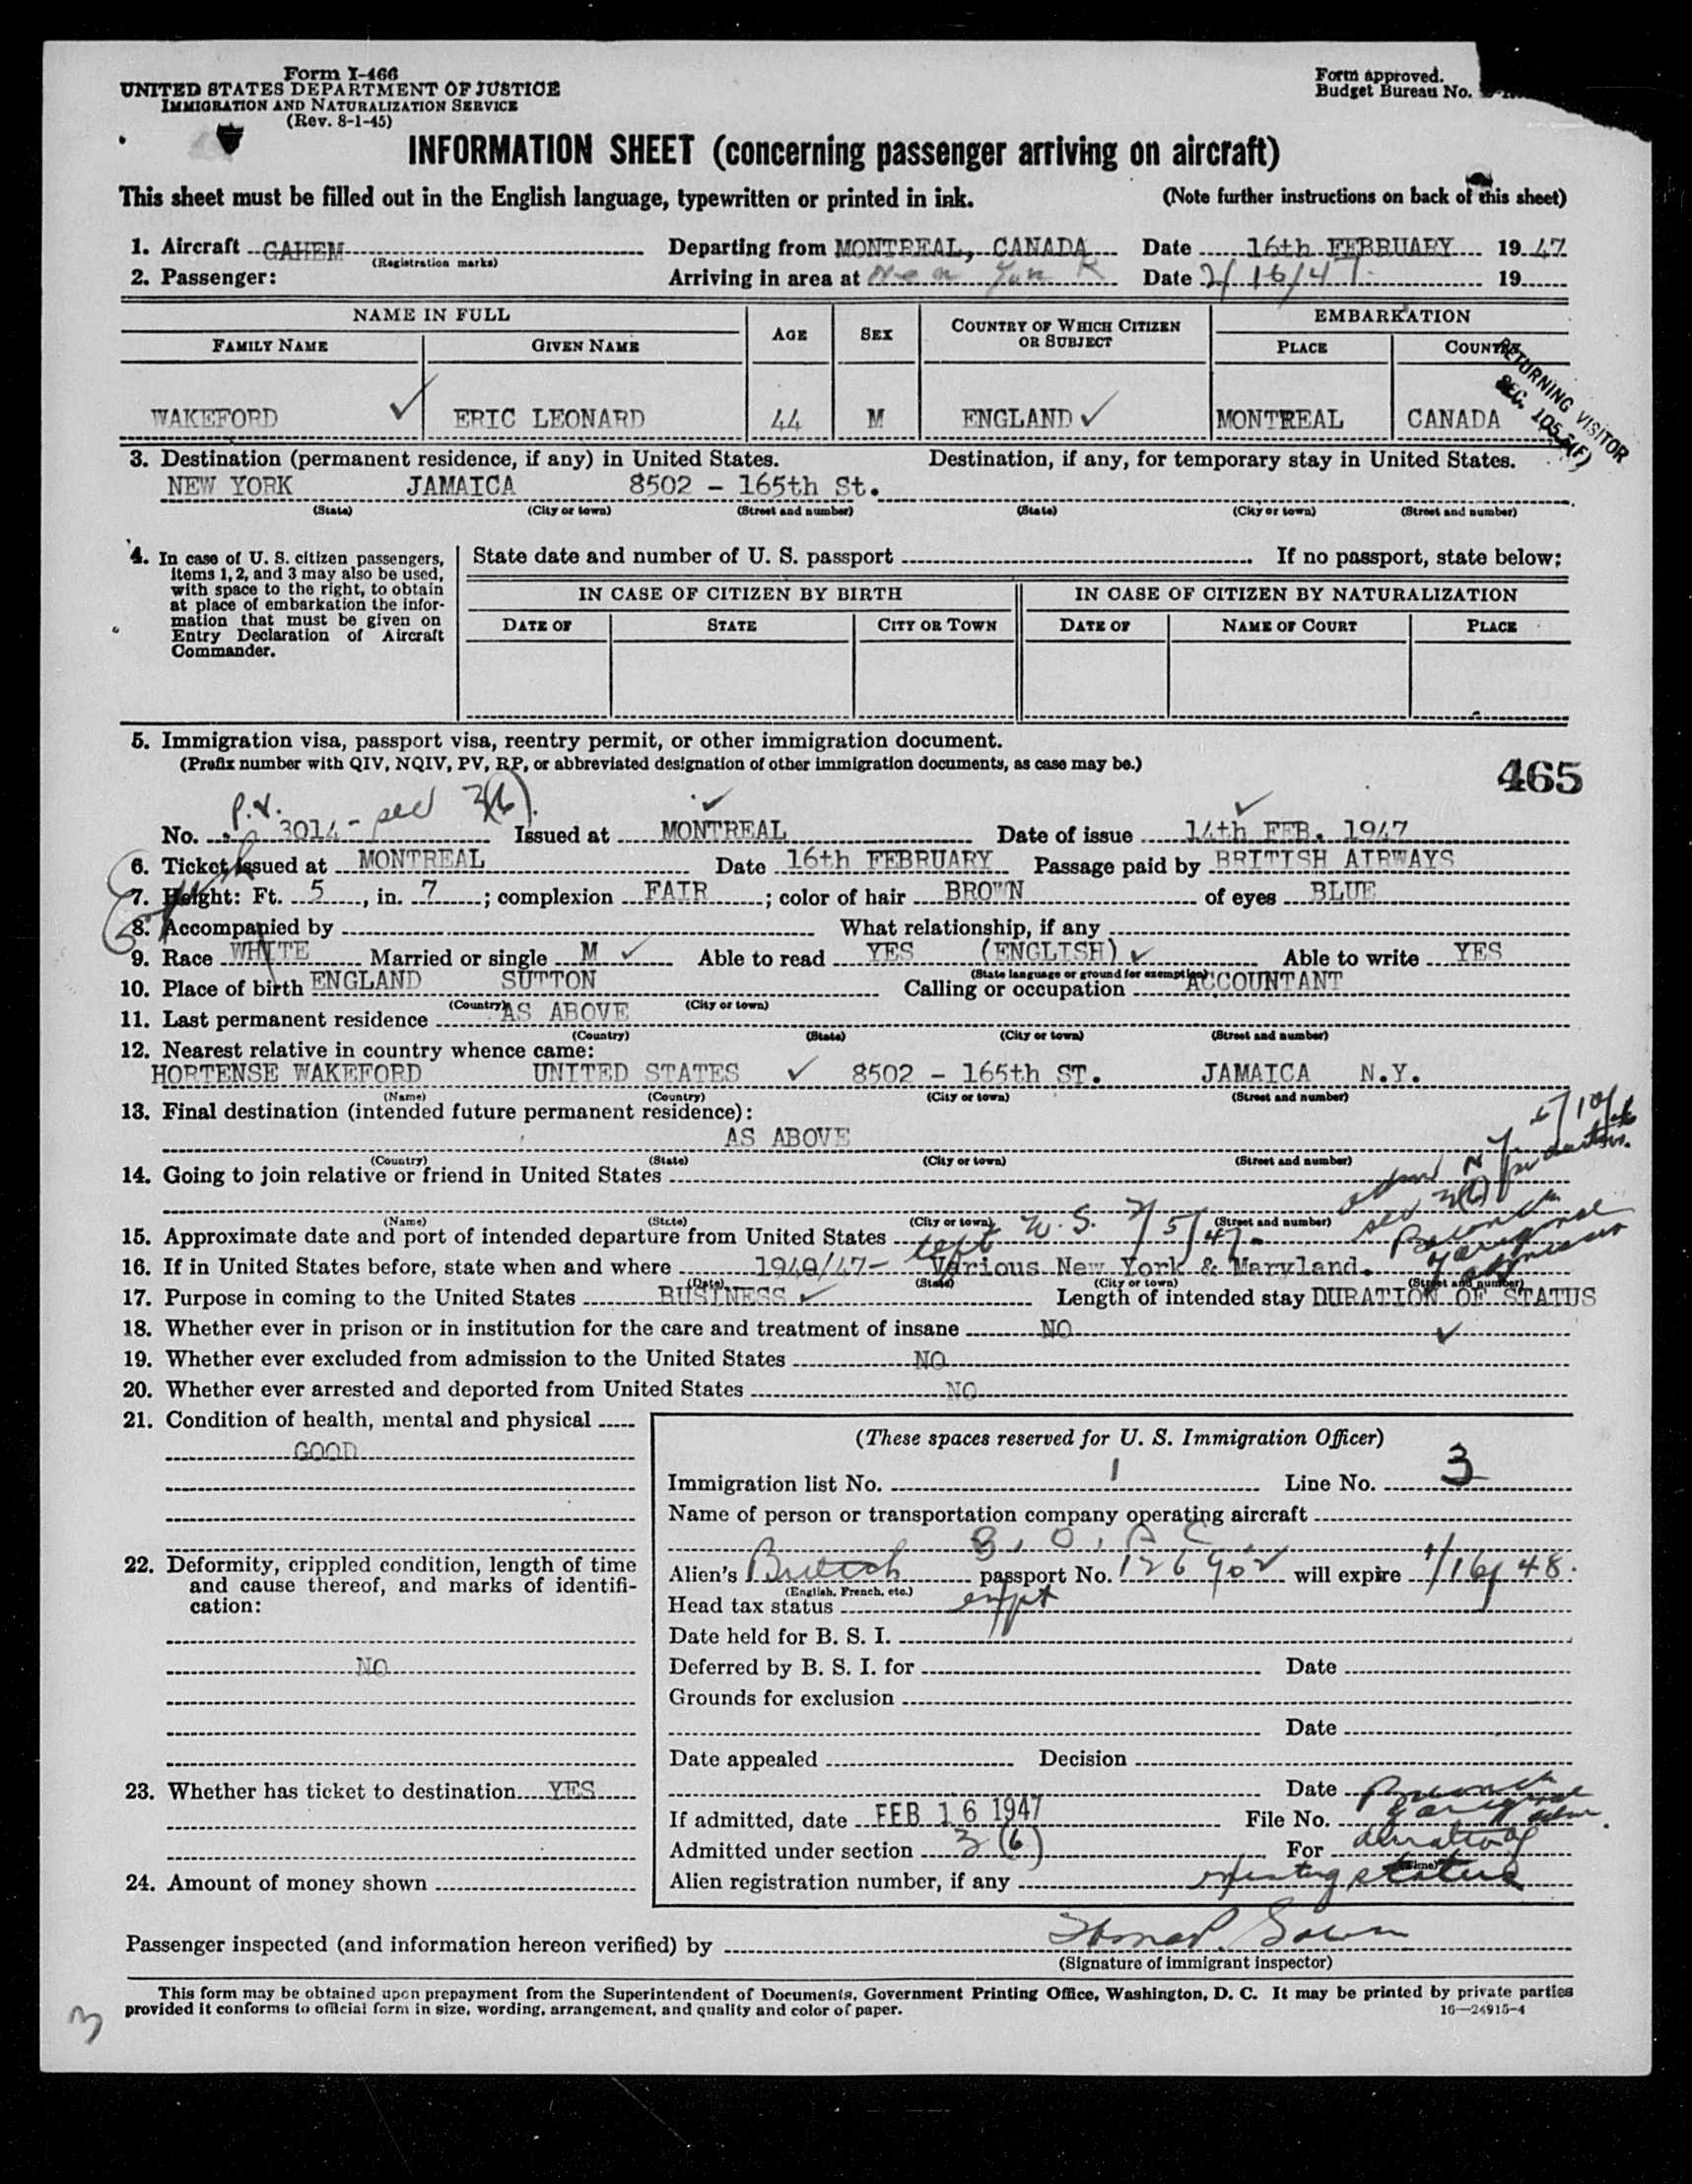 Form I-466
UNITED STATES DEPARTMENT OF JUSTICE
IMMIGRATION AND NATURALIZATION SERVICE
(Rev. 8-1-45)
Form approved.
Budget Bureau No.
INFORMATION SHEET (concerning passenger arriving on aircraft)
This sheet must be filled out in the English language, typewritten or printed in ink. (Note further instructions on back of this sheet)
1. Aircraft GAHEM Departing from MONTREAL, CANADA Date 16th FEBRUARY 1947
(Registration marks)
2. Passenger: Arriving in area at New York Date 2/16/47 19
NAME IN FULL AGE SEX COUNTRY OF WHICH CITIZEN OR SUBJECT EMBARKATION
FAMILY NAME GIVEN NAME PLACE COUNTRY
RETURNING VISITOR
SEC. 105.3(F)
WAKEFORD ERIC LEONARD 44 M ENGLAND MONTREAL CANADA
3. Destination (permanent residence, if any) in United States. Destination, if any, for temporary stay in United States.
NEW YORK JAMAICA 8502 - 165th St.
(State) (City or town) (Street and number) (State) (City or town) (Street and number)
4. In case of U. S. citizen passengers, items 1, 2, and 3 may also be used, with space to the right, to obtain at place of embarkation the information that must be given on Entry Declaration of Aircraft Commander.
State date and number of U. S. passport If no passport, state below:
IN CASE OF CITIZEN BY BIRTH IN CASE OF CITIZEN BY NATURALIZATION
DATE OF STATE CITY OR TOWN DATE OF NAME OF COURT PLACE
5. Immigration visa, passport visa, reentry permit, or other immigration document.
(Prefix number with QIV, NQIV, PV, RP, or abbreviated designation of other immigration documents, as case may be.)
465
P.V. sec 3(6).
No. 3014 Issued at MONTREAL Date of issue 14th FEB. 1947
6. Ticket issued at MONTREAL Date 16th FEBRUARY Passage paid by BRITISH AIRWAYS
7. Height: Ft. 5, in. 7; complexion FAIR; color of hair BROWN of eyes BLUE
8. Accompanied by What relationship, if any
9. Race WHITE Married or single M Able to read YES (ENGLISH) Able to write YES
(State language or ground for exemption)
10. Place of birth ENGLAND SUTTON Calling or occupation ACCOUNTANT
(Country) (City or town)
11. Last permanent residence AS ABOVE
(Country) (State) (City or town) (Street and number)
12. Nearest relative in country whence came:
HORTENSE WAKEFORD UNITED STATES 8502 - 165th ST. JAMAICA N.Y.
(Name) (Country) (City or town) (Street and number)
13. Final destination (intended future permanent residence):
AS ABOVE
(Country) (State) (City or town) (Street and number)
14. Going to join relative or friend in United States
(Name) (State) (City or town) (Street and number)
15. Approximate date and port of intended departure from United States left U.S. 2/5/47
sec 3(6)
16. If in United States before, state when and where 1940/47- Various New York & Maryland.
(Date) (State) (City or town) (Street and number)
17. Purpose in coming to the United States BUSINESS Length of intended stay DURATION OF STATUS
18. Whether ever in prison or in institution for the care and treatment of insane NO
19. Whether ever excluded from admission to the United States NO
20. Whether ever arrested and deported from United States NO
21. Condition of health, mental and physical
GOOD
22. Deformity, crippled condition, length of time and cause thereof, and marks of identification:
NO
23. Whether has ticket to destination YES
24. Amount of money shown
(These spaces reserved for U. S. Immigration Officer)
Immigration list No. 1 Line No. 3
Name of person or transportation company operating aircraft
B.O.A.C.
Alien's British passport No. 126902 will expire 1/16/48.
(English, French, etc.)
Head tax status
Date held for B. S. I.
Deferred by B. S. I. for Date
Grounds for exclusion
Date
Date appealed Decision
Date
If admitted, date FEB 16 1947 File No.
Admitted under section 3(6) For duration of
(Time)
Alien registration number, if any status
Passenger inspected (and information hereon verified) by
(Signature of immigrant inspector)
This form may be obtained upon prepayment from the Superintendent of Documents, Government Printing Office, Washington, D. C. It may be printed by private parties
provided it conforms to official form in size, wording, arrangement, and quality and color of paper. 16—24915-4
3